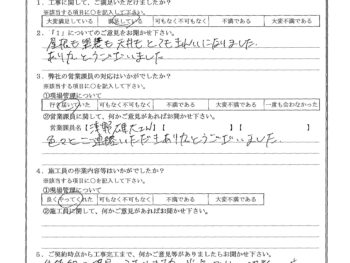 1. 工事に関して、ご満足いただけましたか？
※該当する項目に○を記入して下さい。
大変満足している 満足している 可も無く不可も無く 不満である 大変不満である
2. 『1』についてのご意見をお聞かせ下さい。
屋根も 壁も 天井も とても きれいになりました。
ありがとうございました
3. 弊社の営業課員の対応はいかがでしたか？
※該当する項目に○を記入して下さい。
①現場管理について
行き届いていた 可もなく不可もなく 不満である 大変不満である 一度も会わなかった
②営業課員に関して、何かご意見があればお聞かせ下さい。
営業課員名【 】【 】
色々とご連絡いただきありがとうございました。
4. 施工員の作業内容等はいかがでしたか？
※該当する項目に○を記入して下さい。
①現場管理について
良くやってくれた 可もなく不可もなく 不満である 大変不満である
②施工員に関して、何かご意見があればお聞かせ下さい。
5. ご契約時点から工事完工まで、何かご意見等がありましたらお聞かせ下さい。